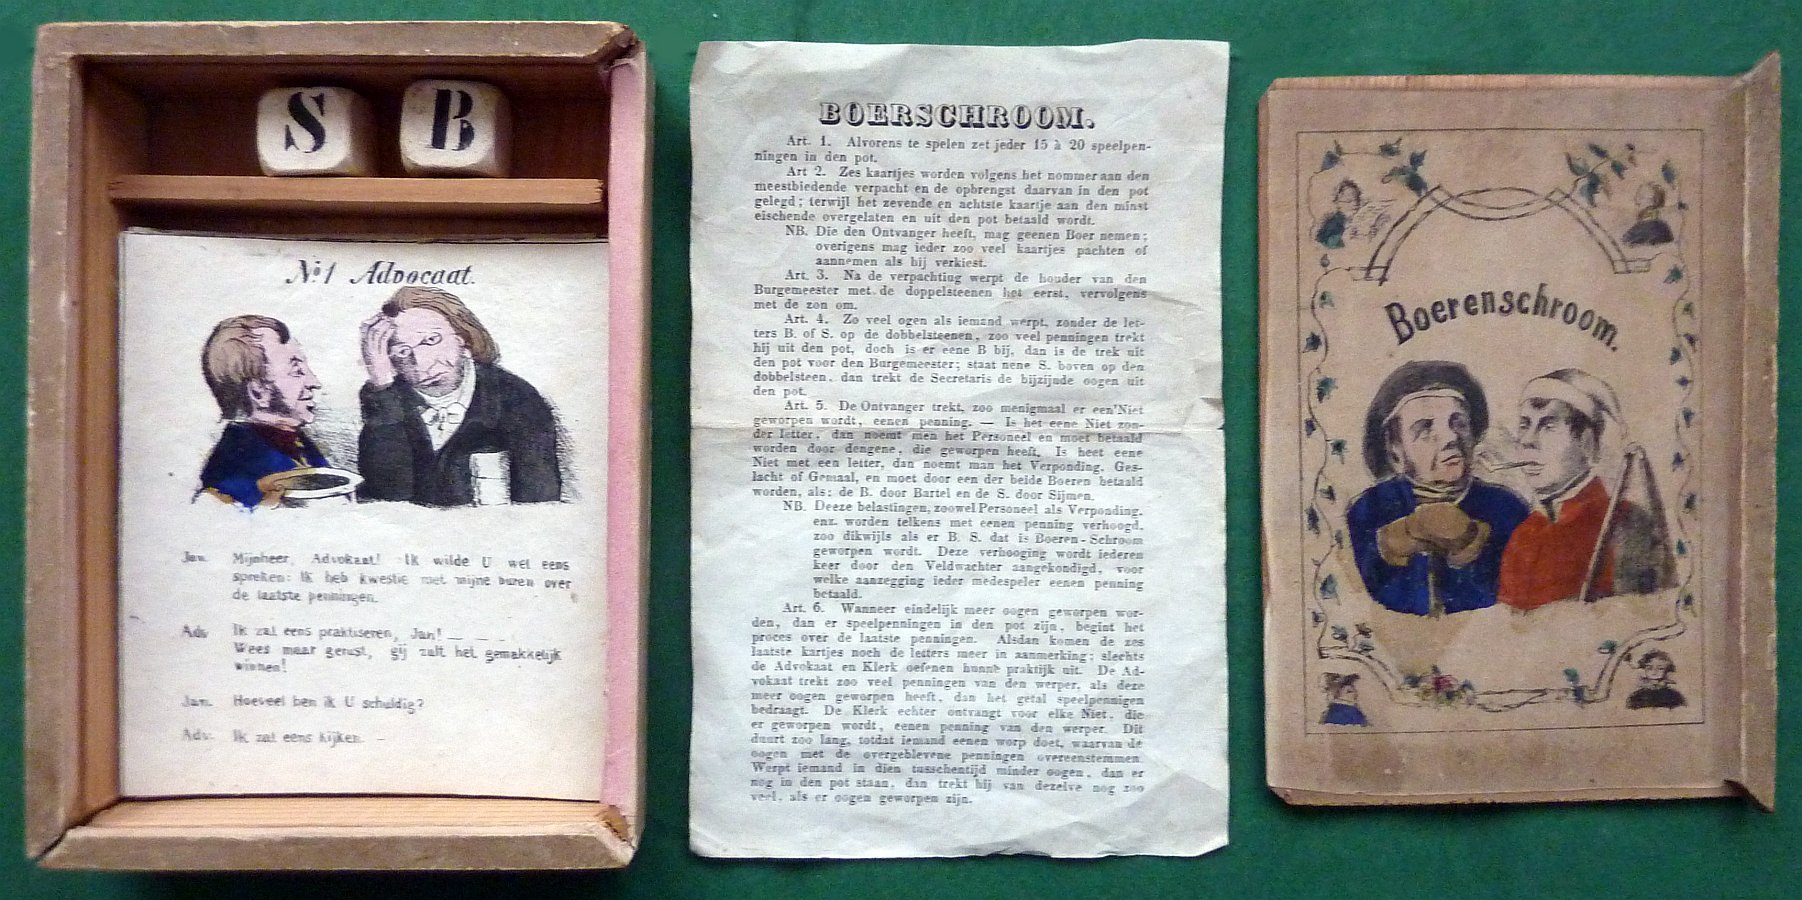 S B
No. 1 Advocaat.
Jan. Mijnheer, Advokaat! Ik wilde U wel eens
spreken: Ik heb kwestie met mijne buren over
de laatste penningen.
Adv. Ik zal eens praktiseren, Jan! _ _ _ _
Wees maar gerust, gij zult het gemakkelijk
winnen!
Jan. Hoeveel ben ik U schuldig?
Adv. Ik zal eens kijken. –
BOERSCHROOM.
Art. 1. Alvorens te spelen zet jeder 15 à 20 speelpen-
ningen in den pot.
Art 2. Zes kaartjes worden volgens het nommer aan den
meestbiedende verpacht en de opbrengst daarvan in den pot
gelegd; terwijl het zevende en achtste kaartje aan den minst
eischende overgelaten en uit den pot betaald wordt.
NB. Die den Ontvanger heeft, mag geenen Boer nemen;
overigens mag ieder zoo veel kaartjes pachten of
aannemen als hij verkiest.
Art. 3. Na de verpachting werpt de houder van den
Burgemeester met de doppelsteenen het eerst, vervolgens
met de zon om.
Art. 4. Zo veel ogen als iemand werpt, zonder de let-
ters B. of S. op de dobbelsteenen, zoo veel penningen trekt
hij uit den pot, doch is er eene B bij, dan is de trek uit
den pot voor den Burgemeester; staat nene S. boven op den
dobbelsteen, dan trekt de Secretaris de bijzijnde oogen uit
den pot.
Art. 5. De Ontvanger trekt, zoo menigmaal er een Niet
geworpen wordt, eenen penning. — Is het eene Niet zon-
der letter, dan noemt men het Personeel en moet betaald
worden door dengene, die geworpen heeft. Is heet eene
Niet met een letter, dan noemt man het Verponding, Ges-
lacht of Gemaal, en moet door een der beide Boeren betaald
worden, als: de B. door Bartel en de S. door Sijmen.
NB. Deeze belastingen, zoowel Personeel als Verponding,
enz. worden telkens met eenen penning verhoogd,
zoo dikwijls als er B. S. dat is Boeren-Schroom
geworpen wordt. Deze verhooging wordt iederen
keer door den Veldwachter aangekondigd, voor
welke aanzegging ieder medespeler eenen penning
betaald.
Art. 6. Wanneer eindelijk meer oogen geworpen wor-
den, dan er speelpenningen in den pot zijn, begint het
proces over de laatste penningen. Alsdan komen de zes
laatste kartjes noch de letters meer in aanmerking; slechts
de Advokaat en Klerk oefenen hunne praktijk uit. De Ad-
vokaat trekt zoo veel penningen van den werper, als deze
meer oogen geworpen heeft, dan het getal speelpennigen
bedraagt. De Klerk echter ontvangt voor elke Niet, die
er geworpen wordt, eenen penning van den werper. Dit
duurt zoo lang, totdat iemand eenen worp doet, waarvan de
oogen met de overgeblevene penningen overeenstemmen.
Werpt iemand in dien tusschentijd minder oogen, dan er
nog in den pot staan, dan trekt hij van dezelve nog zoo
veel, als er oogen geworpen zijn.
Boerenschroom.